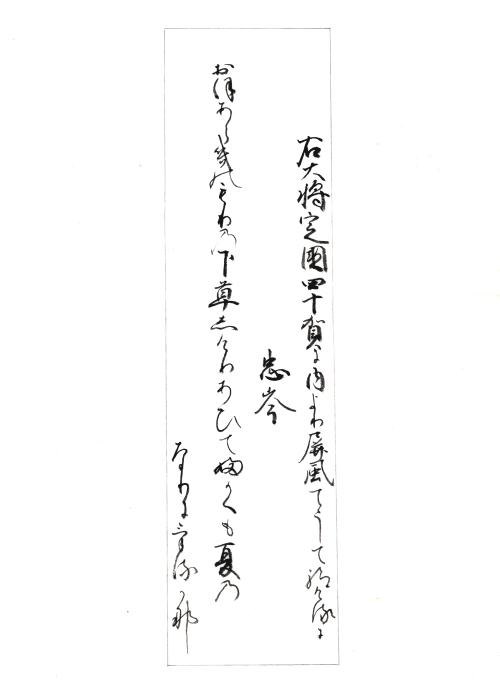 右大将定國四十賀に内より屏風てうして給けるに
忠岑
おほあらきのもりの下草しけりあひてふかくも夏の
なりにけるかな